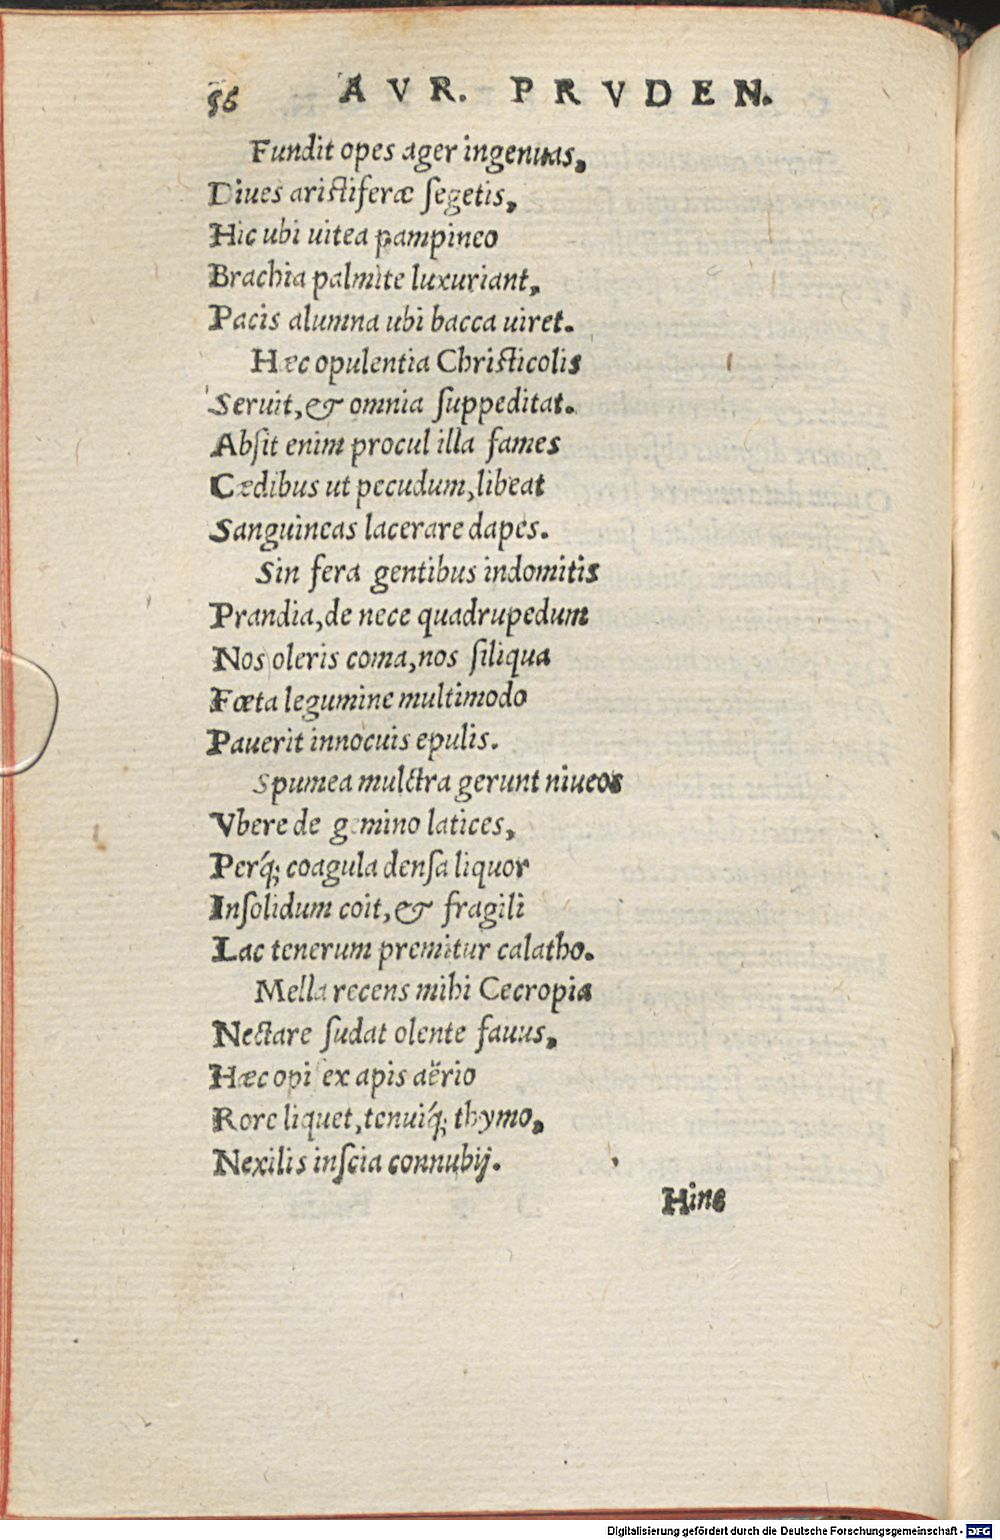 56 AVR. PRVDEN.
Fundit opes ager ingenuas,
Diues aristiferæ ſegetis,
Hic ubi uitea pampineo
Brachia palmite luxuriant,
Pacis alumna ubi bacca uiret.
Hæc opulentia Christicolis
Seruit, & omnia ſuppeditat.
Abſit enim procul illa fames
Cædibus ut pecudum, libeat
Sanguineas lacerare dapes.
Sin fera gentibus indomitis
Prandia, de nece quadrupedum
Nos oleris coma, nos ſiliqua
Fœta legumine multimodo
Pauerit innocuis epulis.
Spumea mulctra gerunt niueos
Vbere de gemino latices,
Perq́; coagula denſa liquor
Inſolidum coit, & fragili
Lac tenerum premitur calatho.
Mella recens mihi Cecropia
Nectare ſudat olente fauus,
Hæc opi ex apis aërio
Rore liquet, tenuiq́; thymo,
Nexilis inſcia connubij.
Hinc
Digitalisierung gefördert durch die Deutsche Forschungsgemeinschaft - DFG